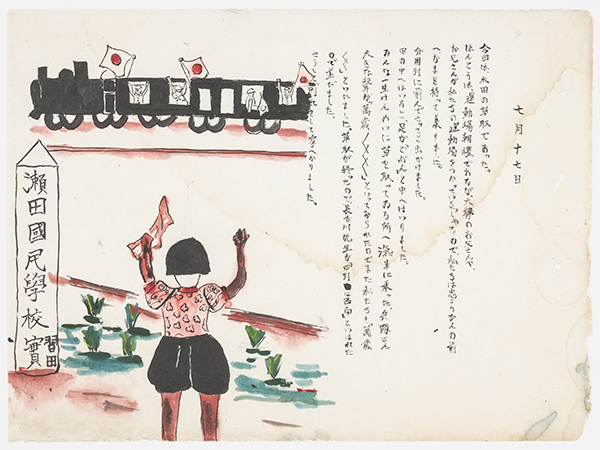 七月十七日
今日は水田の草取であった。
ほんとうは、運動場であるが、大勢のお父さんや、
お兄さんが私たちの運動場をつかっていらっしゃったので私たちは の前
へかまを持って集りました。
分団別に んでさっさと出かけました。
田の中へはいると、足がどぶんと中へはいりました。
みんな一生けんめいに草を取ってゐる所へ、汽車に乗った兵隊さん
大きな聲で萬歳〱〱〱といってをられたのでまた私たちも「萬歳
〱〱」といひました。草取が終ったので、長谷川先生が「四列に西向」といはれた
ので並びました。
さうして かへりました。
瀬田國民學校實習田